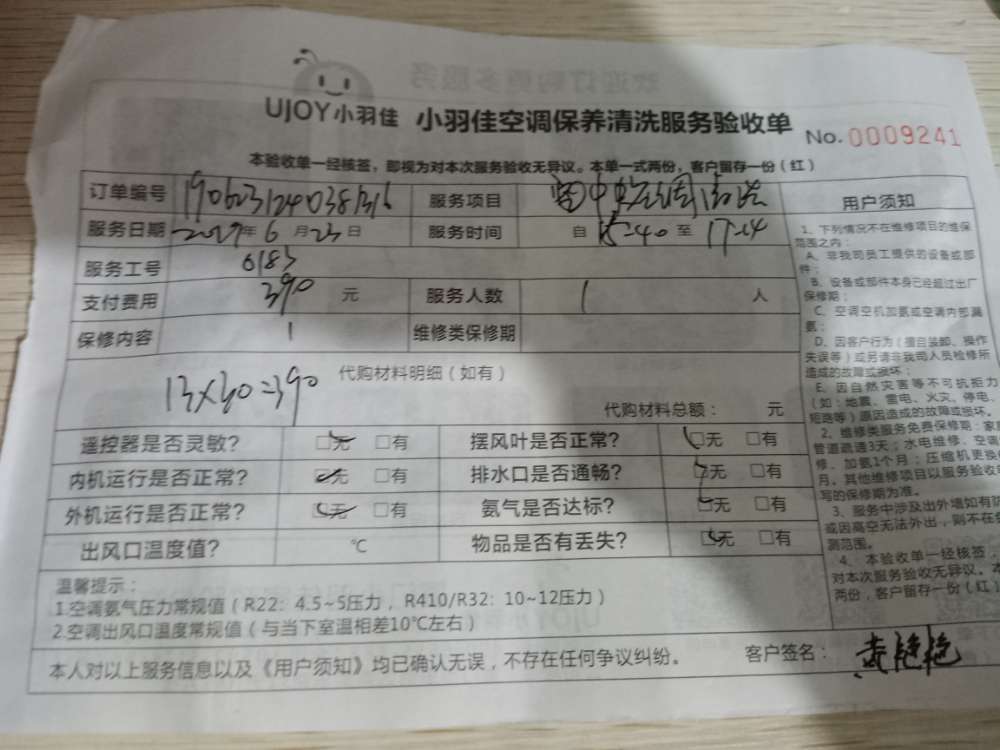 UJOY小羽佳 小羽佳空调保养清洗服务验收单 No. 0009241
本验收单一经核签，即视为对本次服务验收无异议。本单一式两份，客户留存一份（红）
订单编号 服务项目 用户须知
服务日期 年 6 月 23 日 服务时间 自 15-40 至 17-14
服务工号 0183
支付费用 390 元 服务人数 1 人
保修内容 1 维修类保修期
代购材料明细（如有）
13×30=390
代购材料总额： 元
遥控器是否灵敏？ □无 □有 摆风叶是否正常？ □无 □有
内机运行是否正常？ □无 □有 排水口是否通畅？ □无 □有
外机运行是否正常？ □无 □有 氨气是否达标？ □无 □有
出风口温度值？ ℃ 物品是否有丢失？ □无 □有
温馨提示：
1.空调氨气压力常规值（R22：4.5~5压力，R410/R32：10~12压力）
2.空调出风口温度常规值（与当下室温相差10℃左右）
本人对以上服务信息以及《用户须知》均已确认无误，不存在任何争议纠纷。 客户签名：
1、下列情况不在维修项目的维保
范围之内：
A、非我司员工提供的设备或部
件；
B、设备或部件本身已经超过出厂
保修期；
C、空调空机加氨或空调内部漏
氨；
D、因客户行为（擅自装卸、操作
失误等）或另请非我司人员检修所
造成的故障或损坏；
E、因自然灾害等不可抗拒力
（如：地震、雷电、火灾、停电、
短路等）原因造成的故障或损坏。
2、维修类服务免费保修期：家
管道疏通3天；水电维修、空调
修、加氨1个月；压缩机更换
月。其他维修项目以服务验收
写的保修期为准。
3、服务中涉及出外墙如有
或因高空无法外出，则不在
测范围。
4、本验收单一经核签，
对本次服务验收无异议。本
两份，客户留存一份（红）